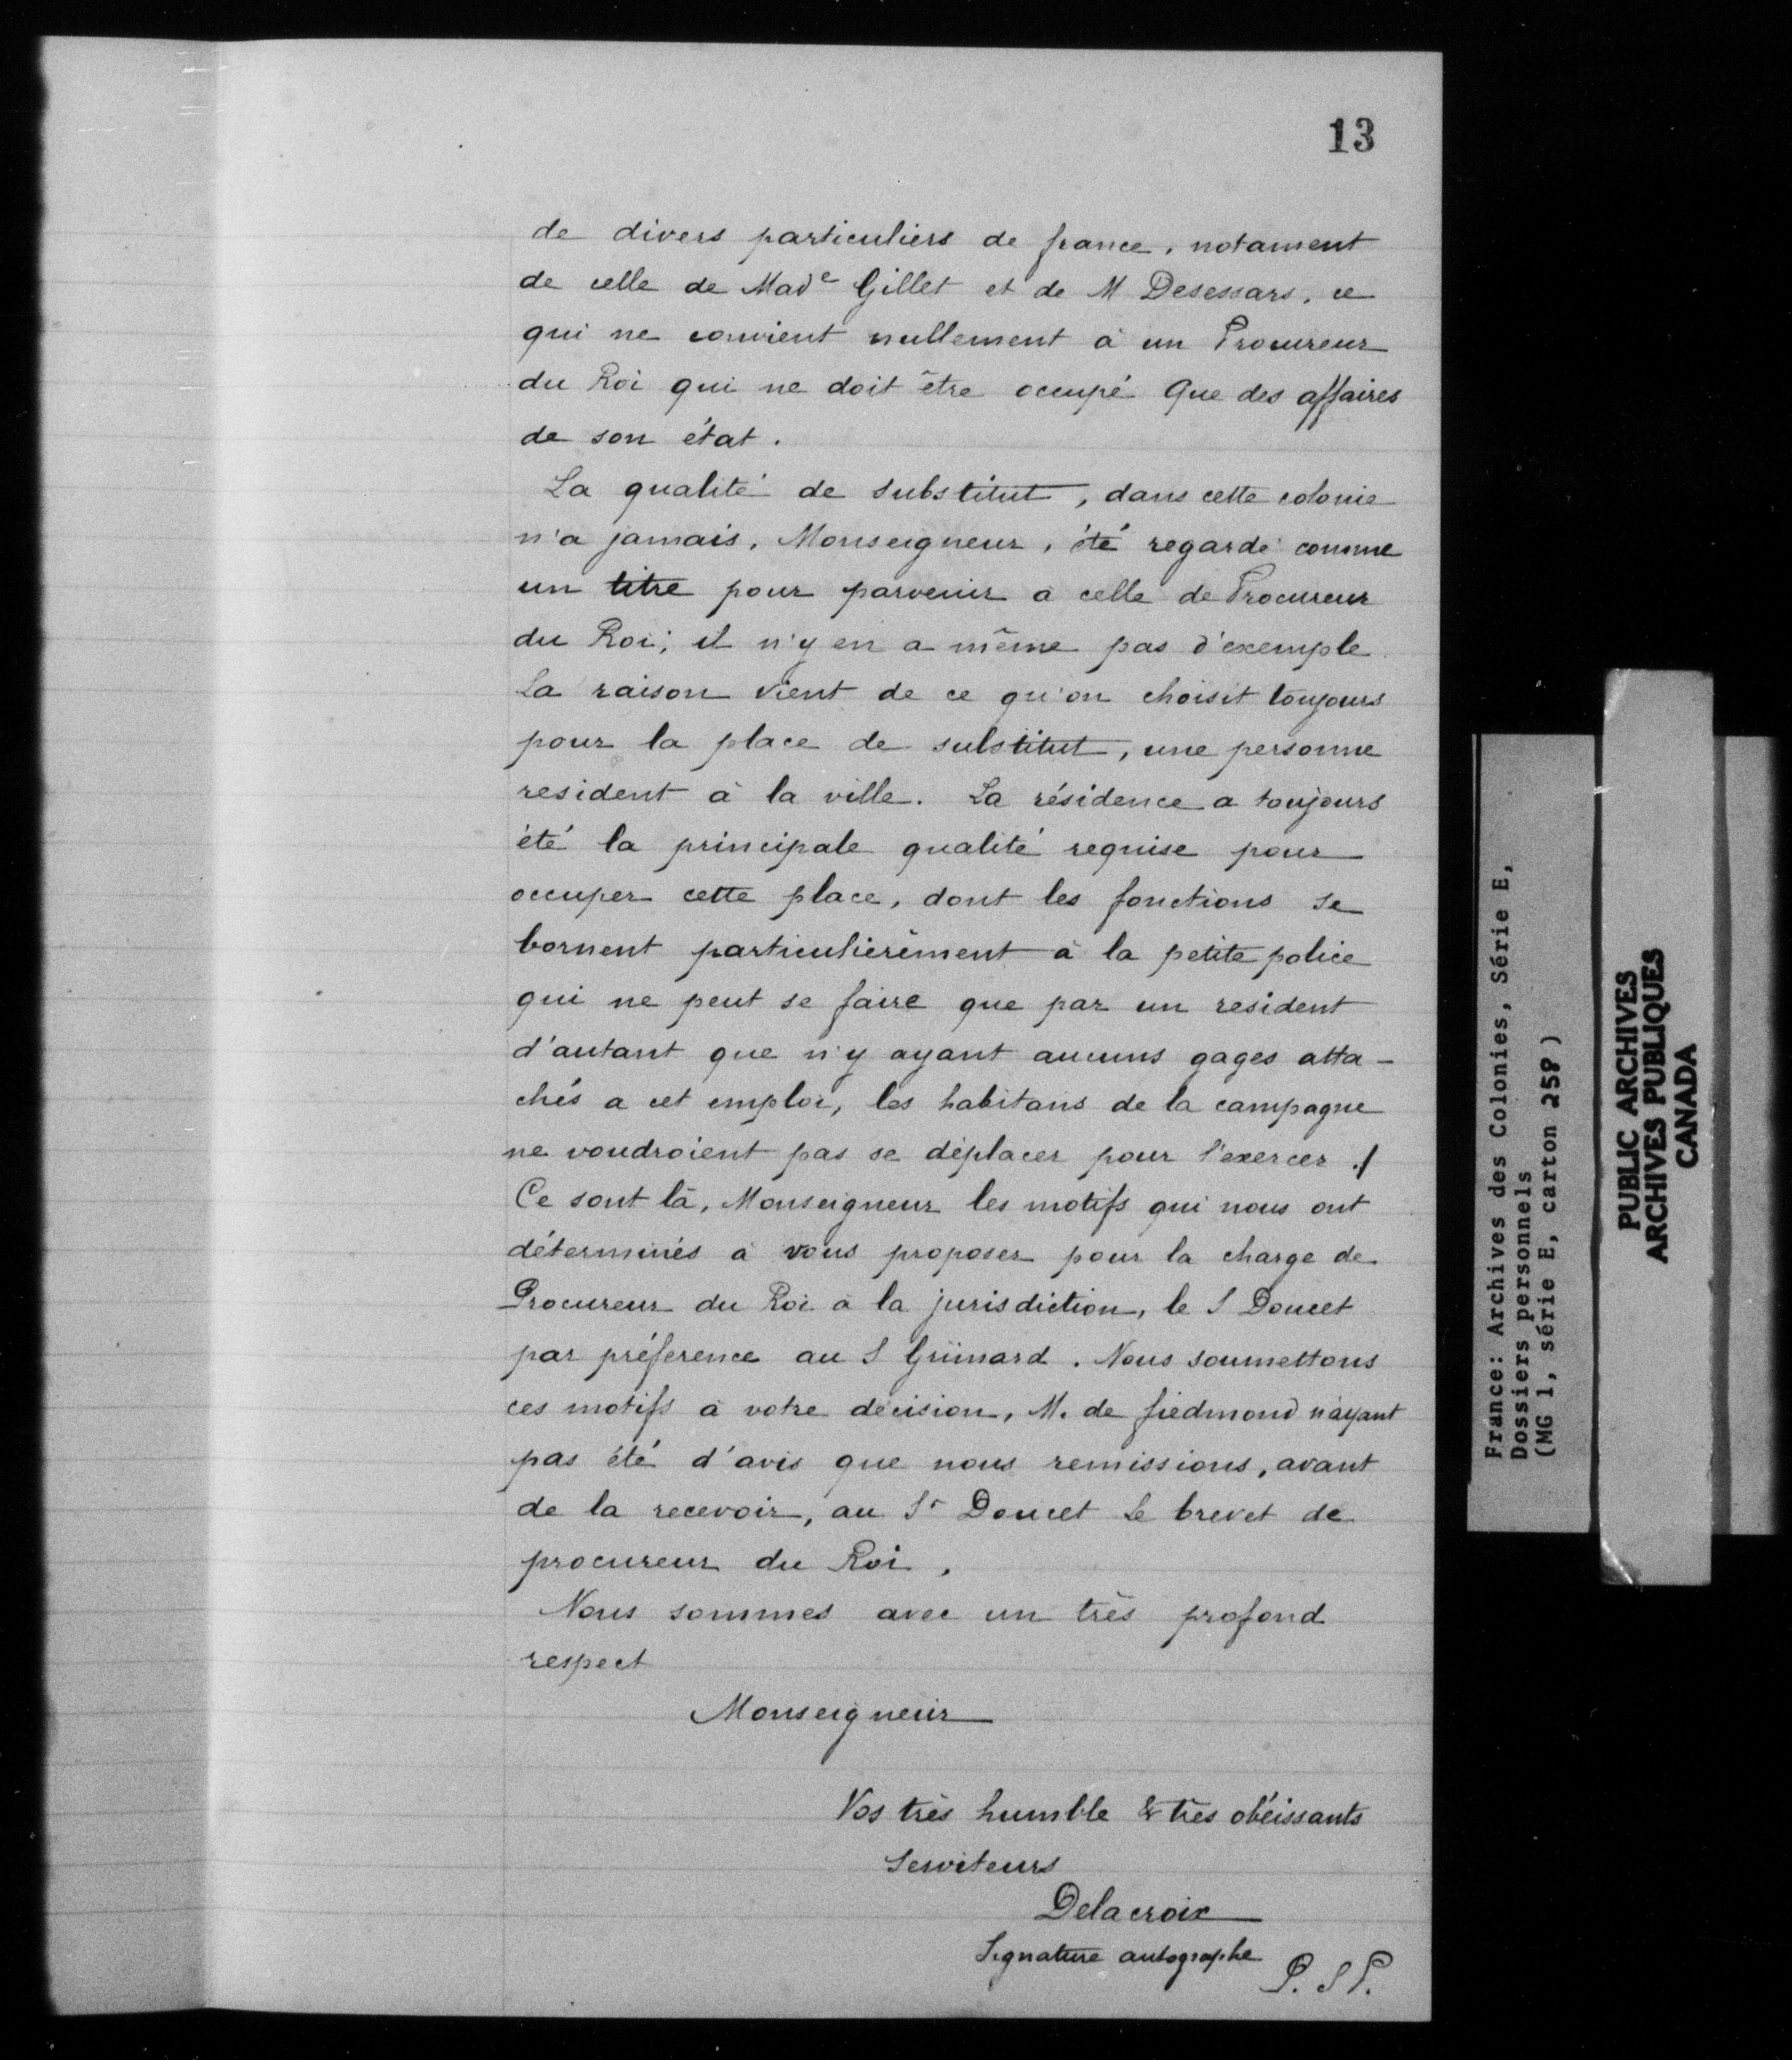 13
de divers particuliers de france, notament
de celle de Madᵉ Gillet et de M Desessars, ce
qui ne convient nullement à un Procureur
du Roi qui ne doit être occupé Que des affaires
de son état.
La qualité de substitut, dans cette colonie
n'a jamais, Monseigneur, été regardé comme
un titre pour parvenir a celle de Procureur
du Roi; il n'y en a même pas d'exemple.
La raison vient de ce qu'on choisit toujours
pour la place de substitut, une personne
resident à la ville. La résidence a toujours
été la principale qualité requise pour
occuper cette place, dont les fonctions se
bornent particulièrement à la petite police
qui ne peut se faire que par un resident
d'autant que n'y ayant aucuns gages atta-
chés a cet emploi, les habitans de la campagne
ne voudroient pas se déplacer pour l'exercer ./
Ce sont là, Monseigneur les motifs qui nous ont
déterminés à vous proposer pour la charge de
Procureur du Roi à la jurisdiction, le S Doucet
par préference au S Grimard. Nous soumettons
ces motifs à votre décision, M. de fiedmond n'ayant
pas été d'avis que nous remissions, avant
de la recevoir, au Sʳ Doucet le brevet de
procureur du Roi,
Nous sommes avec un très profond
respect
Monseigneur
Vos très humble & très obéissants
Serviteurs
Delacroix
Signature autographe
P. S P.
France: Archives des Colonies, Série E,
Dossiers personnels
(MG 1, série E, carton 258)
PUBLIC ARCHIVES
ARCHIVES PUBLIQUES
CANADA